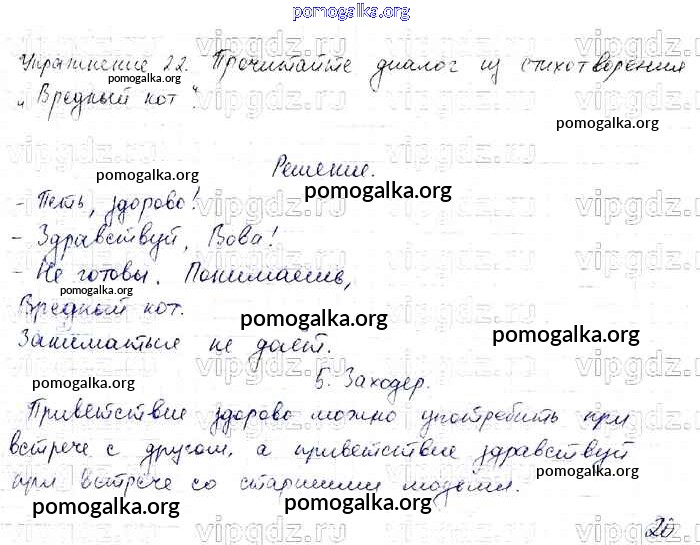 pomogalka.org
Упражнение 22. Прочитайте диалог из стихотворения
pomogalka.org
„Вредный кот".
pomogalka.org
Решение.
pomogalka.org
pomogalka.org
- Петь, здорово!
- Здравствуй, Вова!
- Не готовы. Понимаешь,
pomogalka.org
Вредный кот.
pomogalka.org
pomogalka.org
Заниматься не даёт.
Б. Заходер.
pomogalka.org
Приветствие здорово можно употребить при
встрече с другом, а приветствие здравствуй
pomogalka.org
при встрече со старшими людьми.
pomogalka.org
pomogalka.org
20
vipgdz.ru